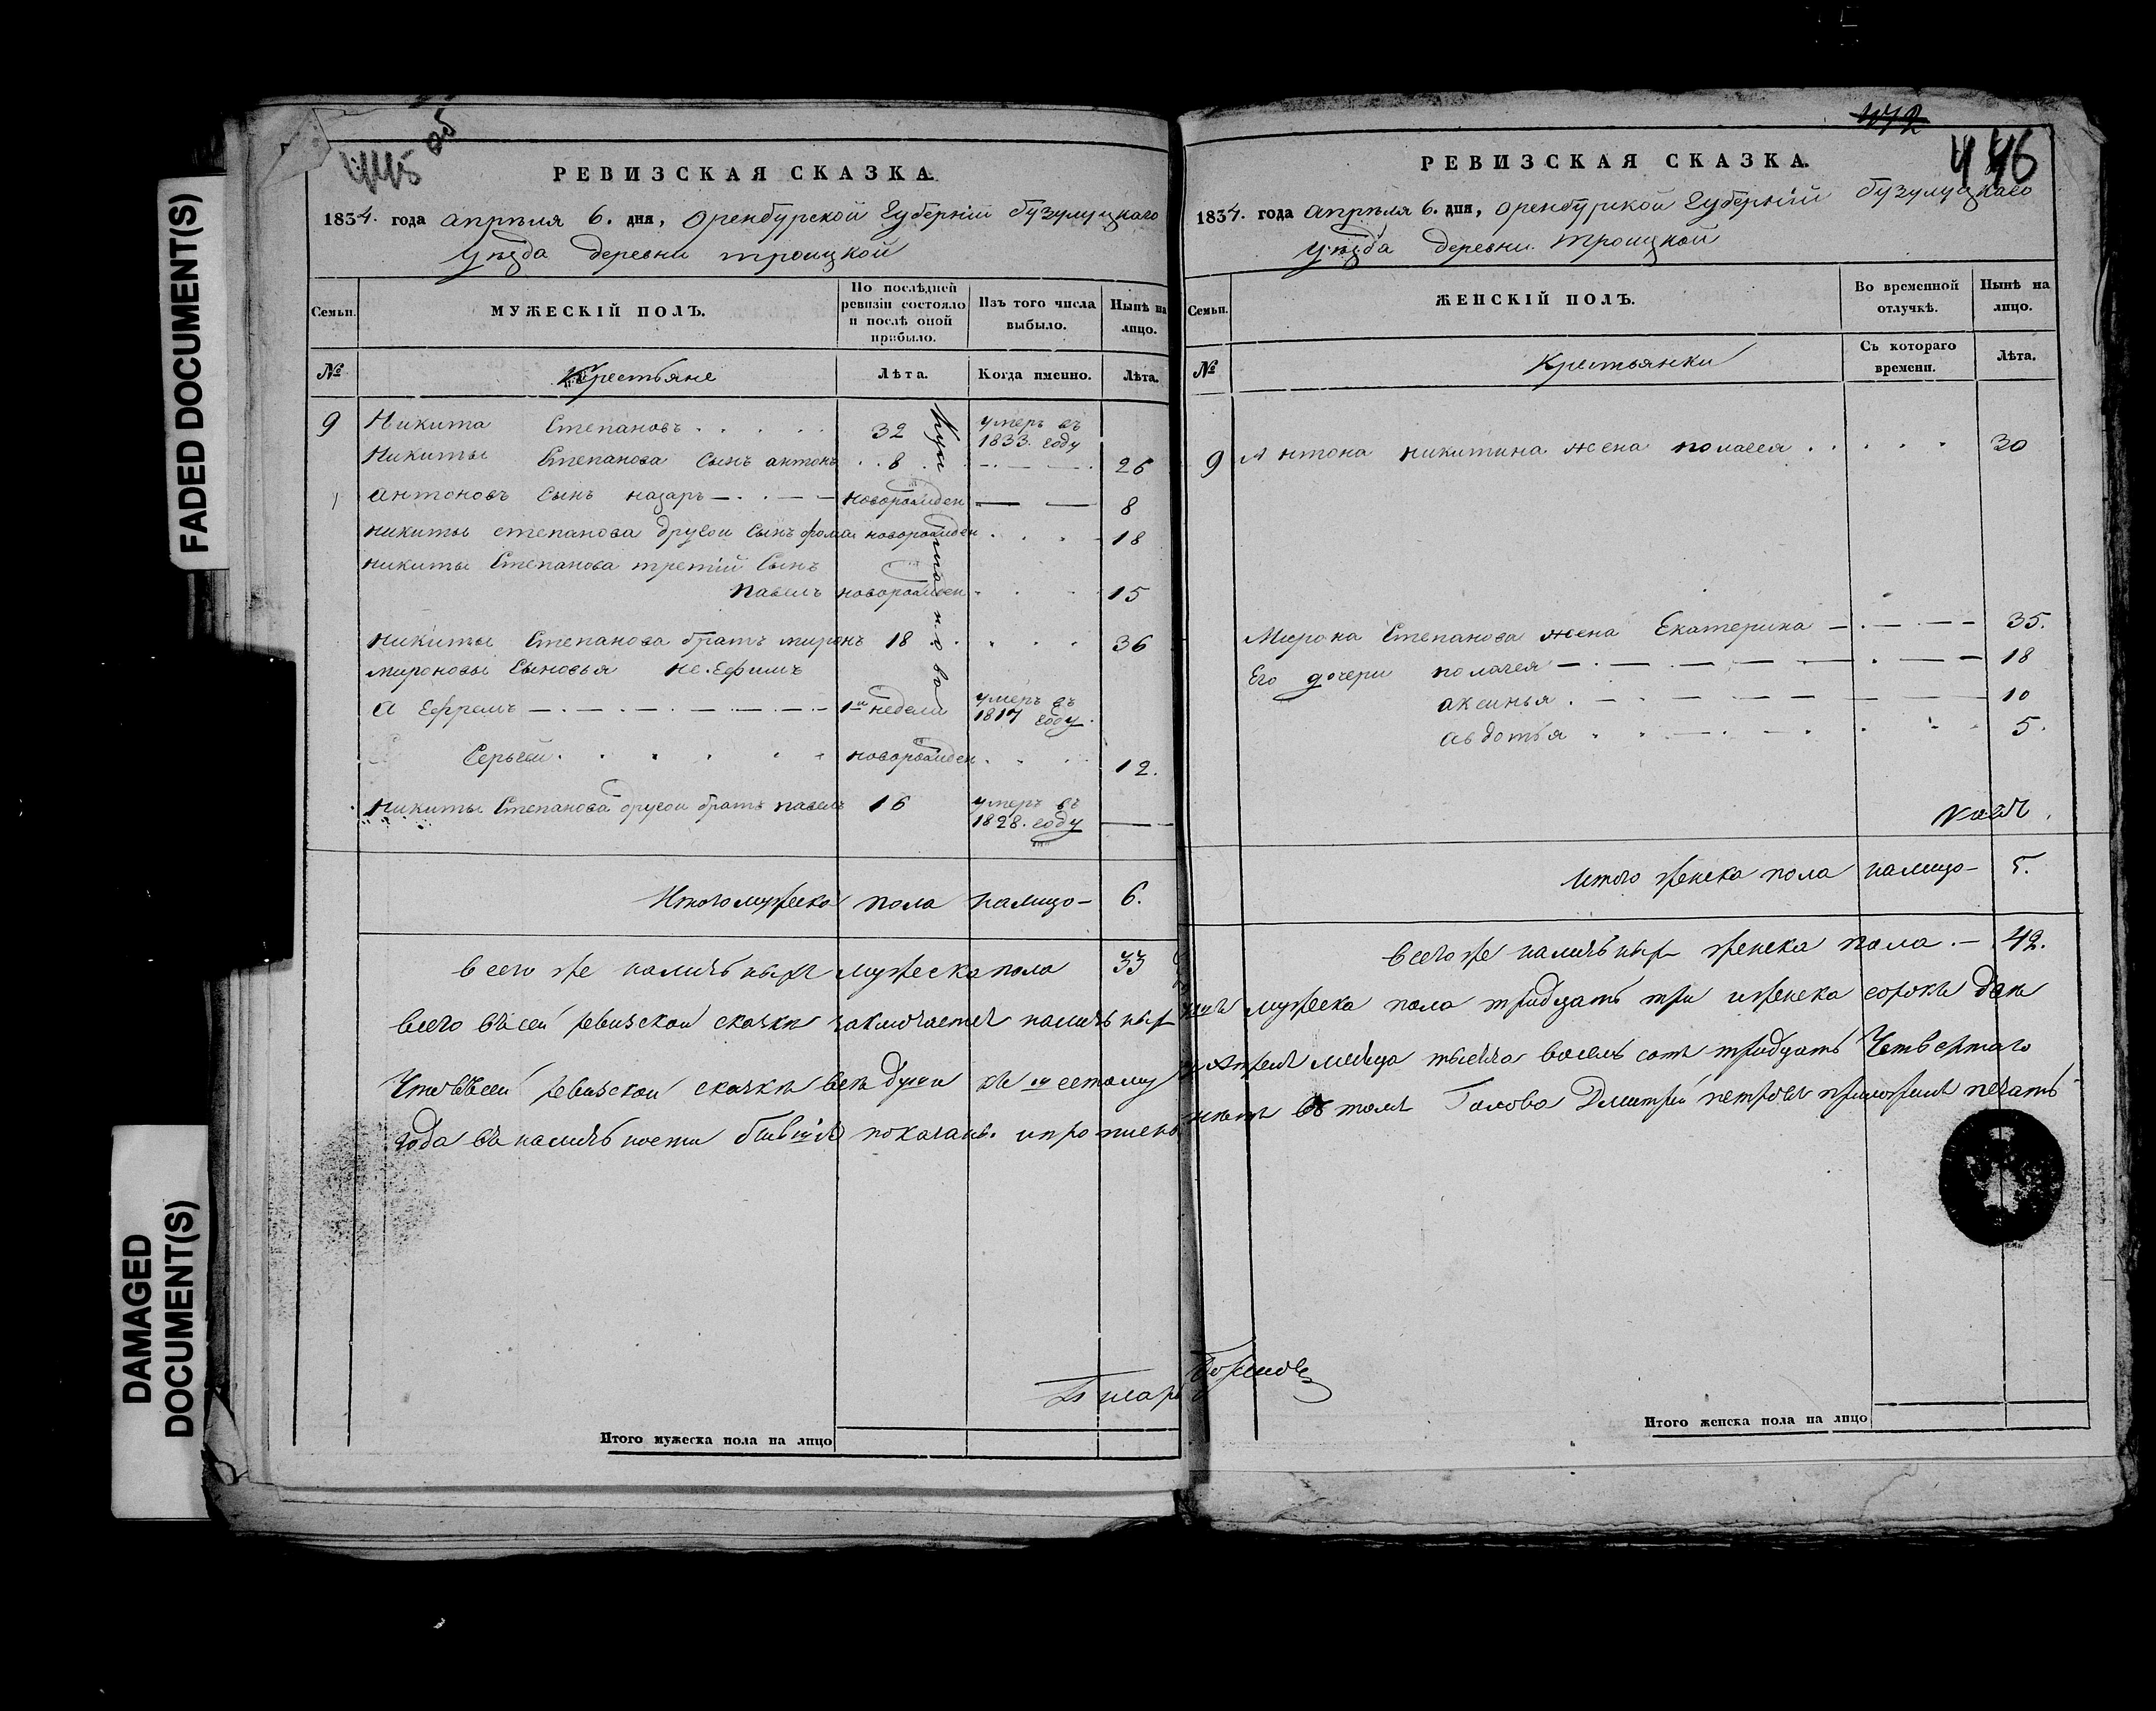 FADED DOCUMENT(S)
DAMAGED DOCUMENT(S)
445 об
РЕВИЗСКАЯ СКАЗКА.
1834. года апрѣля 6. дня, Оренбурской Губерніи бузулуцкаго
уѣзда деревни троицкой
Семьи.
МУЖЕСКІЙ ПОЛЪ.
По послѣдней ревизіи состояло и послѣ оной прибыло.
Изъ того числа выбыло.
Нынѣ на лицо.
№
Крестьяне
Лѣта.
Когда именно.
Лѣта.
9 Никита Степановъ 32 умеръ въ 1833. году
Никиты Степанова сынъ антонъ 8 26
антоновъ сынъ назаръ новорожден 8
никиты степанова другой сынъ фома новорожден 18
никиты Степанова третій сынъ
павелъ новорожден 15
никиты Степанова братъ миронъ 18 36
мироновы сыновья не. Ефимъ
а Ефремъ 1й недели умеръ въ 1817 году.
Сергей новорожден 12.
никиты Степанова другой братъ павелъ 16 умеръ въ 1828. году
Итого мужеска пола налицо 6.
всего же наличныхъ мужеска пола 33
всего въ сей ревизской сказки заключается наличныхъ
Что въ сей ревизской сказки все души къ шестому
года въ наличьности бывшія показаны.
Писарь
Итого мужеска пола на лицо
472
446
РЕВИЗСКАЯ СКАЗКА.
1834. года апрѣля 6. дня, оренбурской Губерніи бузулуцкаго
уѣзда деревни троицкой
Семьи.
ЖЕНСКІЙ ПОЛЪ.
Во временной отлучкѣ.
Нынѣ на лицо.
№
Крестьянки
Съ котораго времени.
Лѣта.
9 Антона никитина жена полагея 30
Мирона Степанова жена Екатерина 35.
Его дочери полагея 18
аксинья 10
авдотья 5.
итого женска пола налицо 5.
всего же наличных женска пола 42.
мужеска пола тридцать три и женска сорокъ две
апреля месяца тысяча восемь сотъ тридцать Четвертаго
въ томъ Голова Дмитрей петровъ приложилъ печать
Итого женска пола на лицо